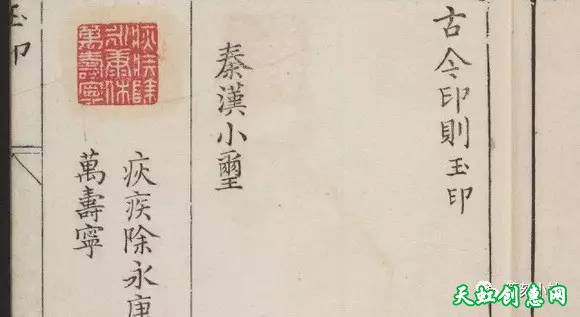 古今印則玉印
秦漢小璽
疢疾除
永康休
萬壽寧
疢疾除永康
萬壽寧
玉印
天虹创意网